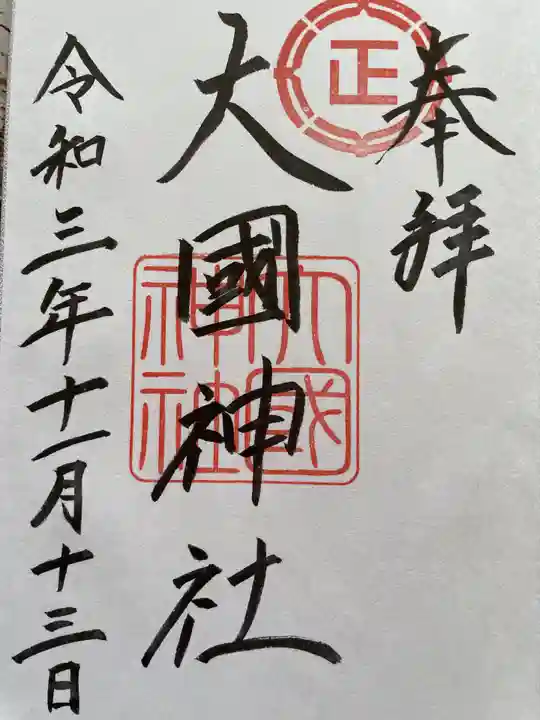 奉拝
正
大國神社
大國神社
令和三年十一月十三日